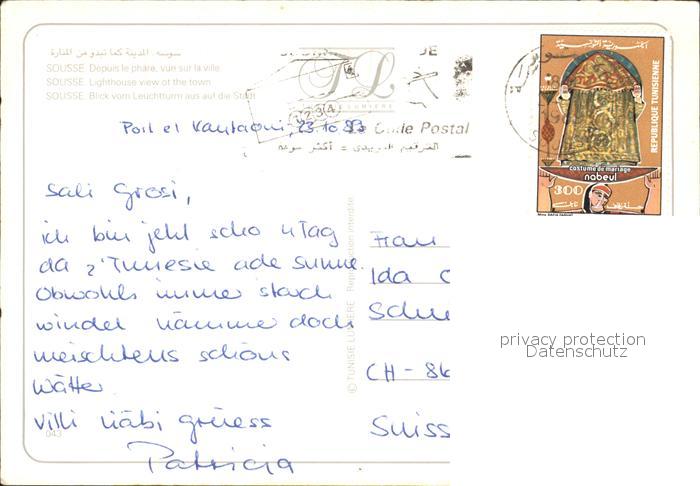 سوسه. المدينة كما تبدو من المنارة
SOUSSE. Depuis le phare, vue sur la ville
SOUSSE. Lighthouse view of the town
SOUSSE. Blick vom Leuchtturm aus auf die Stadt
TL
LUMIERE
1234
Code Postal
الترقيم البريدي = أكثر سرعة
الجمهورية التونسية
REPUBLIQUE TUNISIENNE
costume de mariage
nabeul
300
Port el Kantaoui, 23.10.93
Sali Grosi,
ich bin jetzt scho 4 Tag
da z'Tunesie ade Sunne.
Obwohls immer starch
windet hämmer doch
meischtens schöns
Wätter.
Villi liäbi grüess
Patricia
043
© TUNISIE LUMIERE Reproduction interdite
Frau
Ida
CH - 86
Suiss
privacy protection
Datenschutz